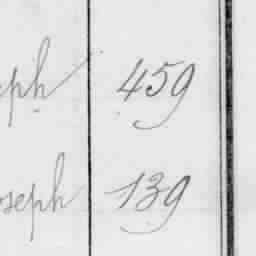 eph 459
oseph 139